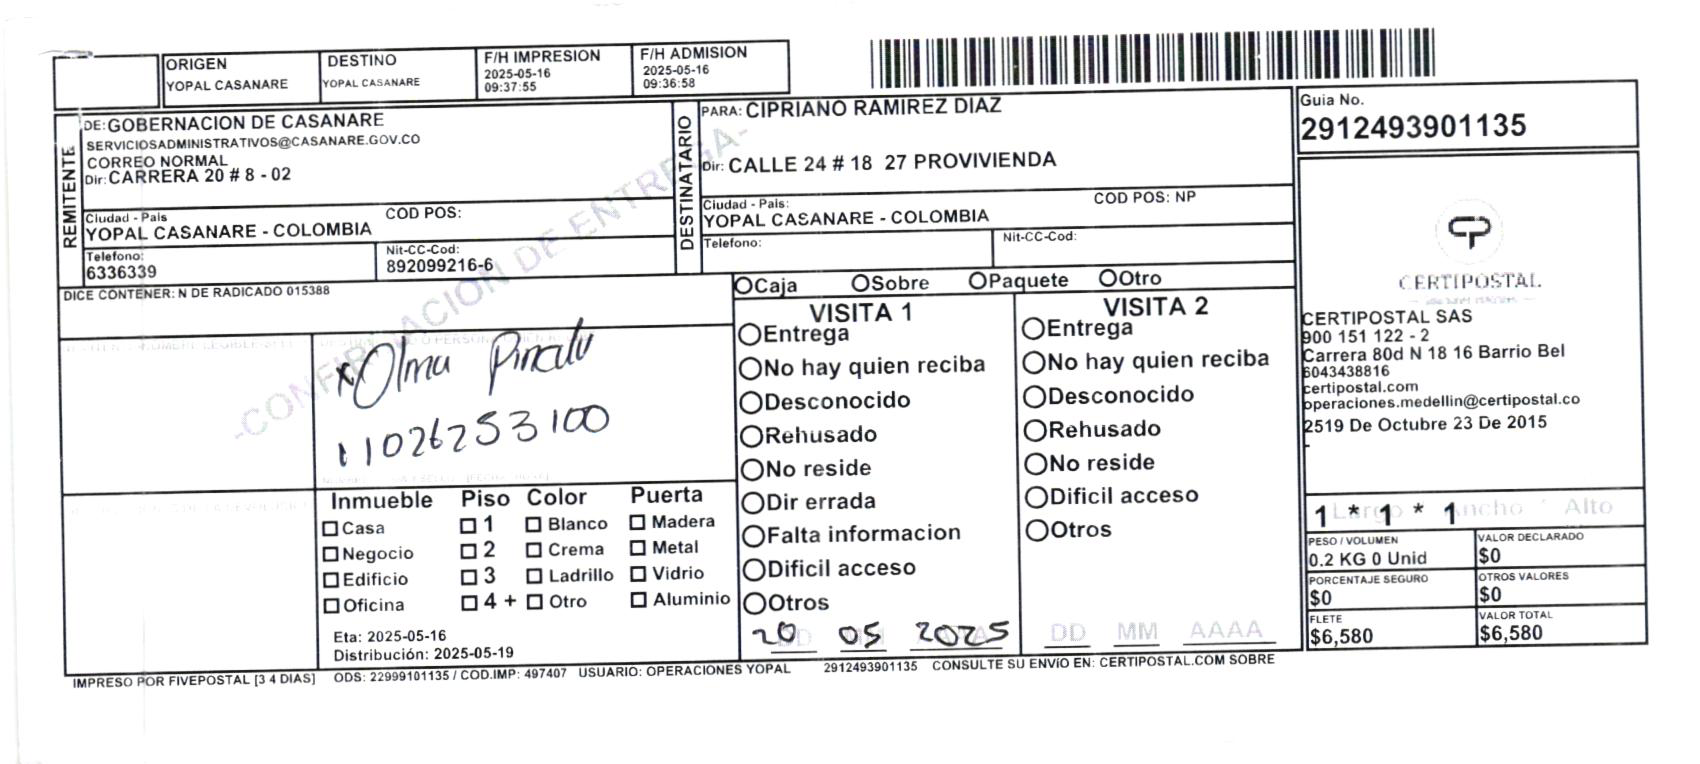 ORIGEN
YOPAL CASANARE
DESTINO
YOPAL CASANARE
F/H IMPRESION
2025-05-16
09:37:55
F/H ADMISION
2025-05-16
09:36:58
REMITENTE
DE: GOBERNACION DE CASANARE
SERVICIOSADMINISTRATIVOS@CASANARE.GOV.CO
CORREO NORMAL
Dir: CARRERA 20 # 8 - 02
Ciudad - Pais
COD POS:
YOPAL CASANARE - COLOMBIA
Telefono:
6336339
Nit-CC-Cod:
892099216-6
DESTINATARIO
PARA: CIPRIANO RAMIREZ DIAZ
Dir: CALLE 24 # 18 27 PROVIVIENDA
Ciudad - Pais:
COD POS: NP
YOPAL CASANARE - COLOMBIA
Telefono:
Nit-CC-Cod:
Guia No.
2912493901135
CERTIPOSTAL
CERTIPOSTAL SAS
900 151 122 - 2
Carrera 80d N 18 16 Barrio Bel
6043438816
certipostal.com
operaciones.medellin@certipostal.co
2519 De Octubre 23 De 2015
-
DICE CONTENER: N DE RADICADO 015388
-CONFIRMACION DE ENTREGA-
Olma
11026253100
Caja Sobre Paquete Otro
VISITA 1
Entrega
No hay quien reciba
Desconocido
Rehusado
No reside
Dir errada
Falta informacion
Dificil acceso
Otros
20 05 2025
VISITA 2
Entrega
No hay quien reciba
Desconocido
Rehusado
No reside
Dificil acceso
Otros
DD MM AAAA
Inmueble Piso Color Puerta
Casa 1 Blanco Madera
Negocio 2 Crema Metal
Edificio 3 Ladrillo Vidrio
Oficina 4 + Otro Aluminio
Eta: 2025-05-16
Distribución: 2025-05-19
1 * 1 * 1
Largo Ancho Alto
PESO / VOLUMEN
0.2 KG 0 Unid
VALOR DECLARADO
$0
PORCENTAJE SEGURO
$0
OTROS VALORES
$0
FLETE
$6,580
VALOR TOTAL
$6,580
IMPRESO POR FIVEPOSTAL [3 4 DIAS] ODS: 22999101135 / COD.IMP: 497407 USUARIO: OPERACIONES YOPAL 2912493901135 CONSULTE SU ENVÍO EN: CERTIPOSTAL.COM SOBRE